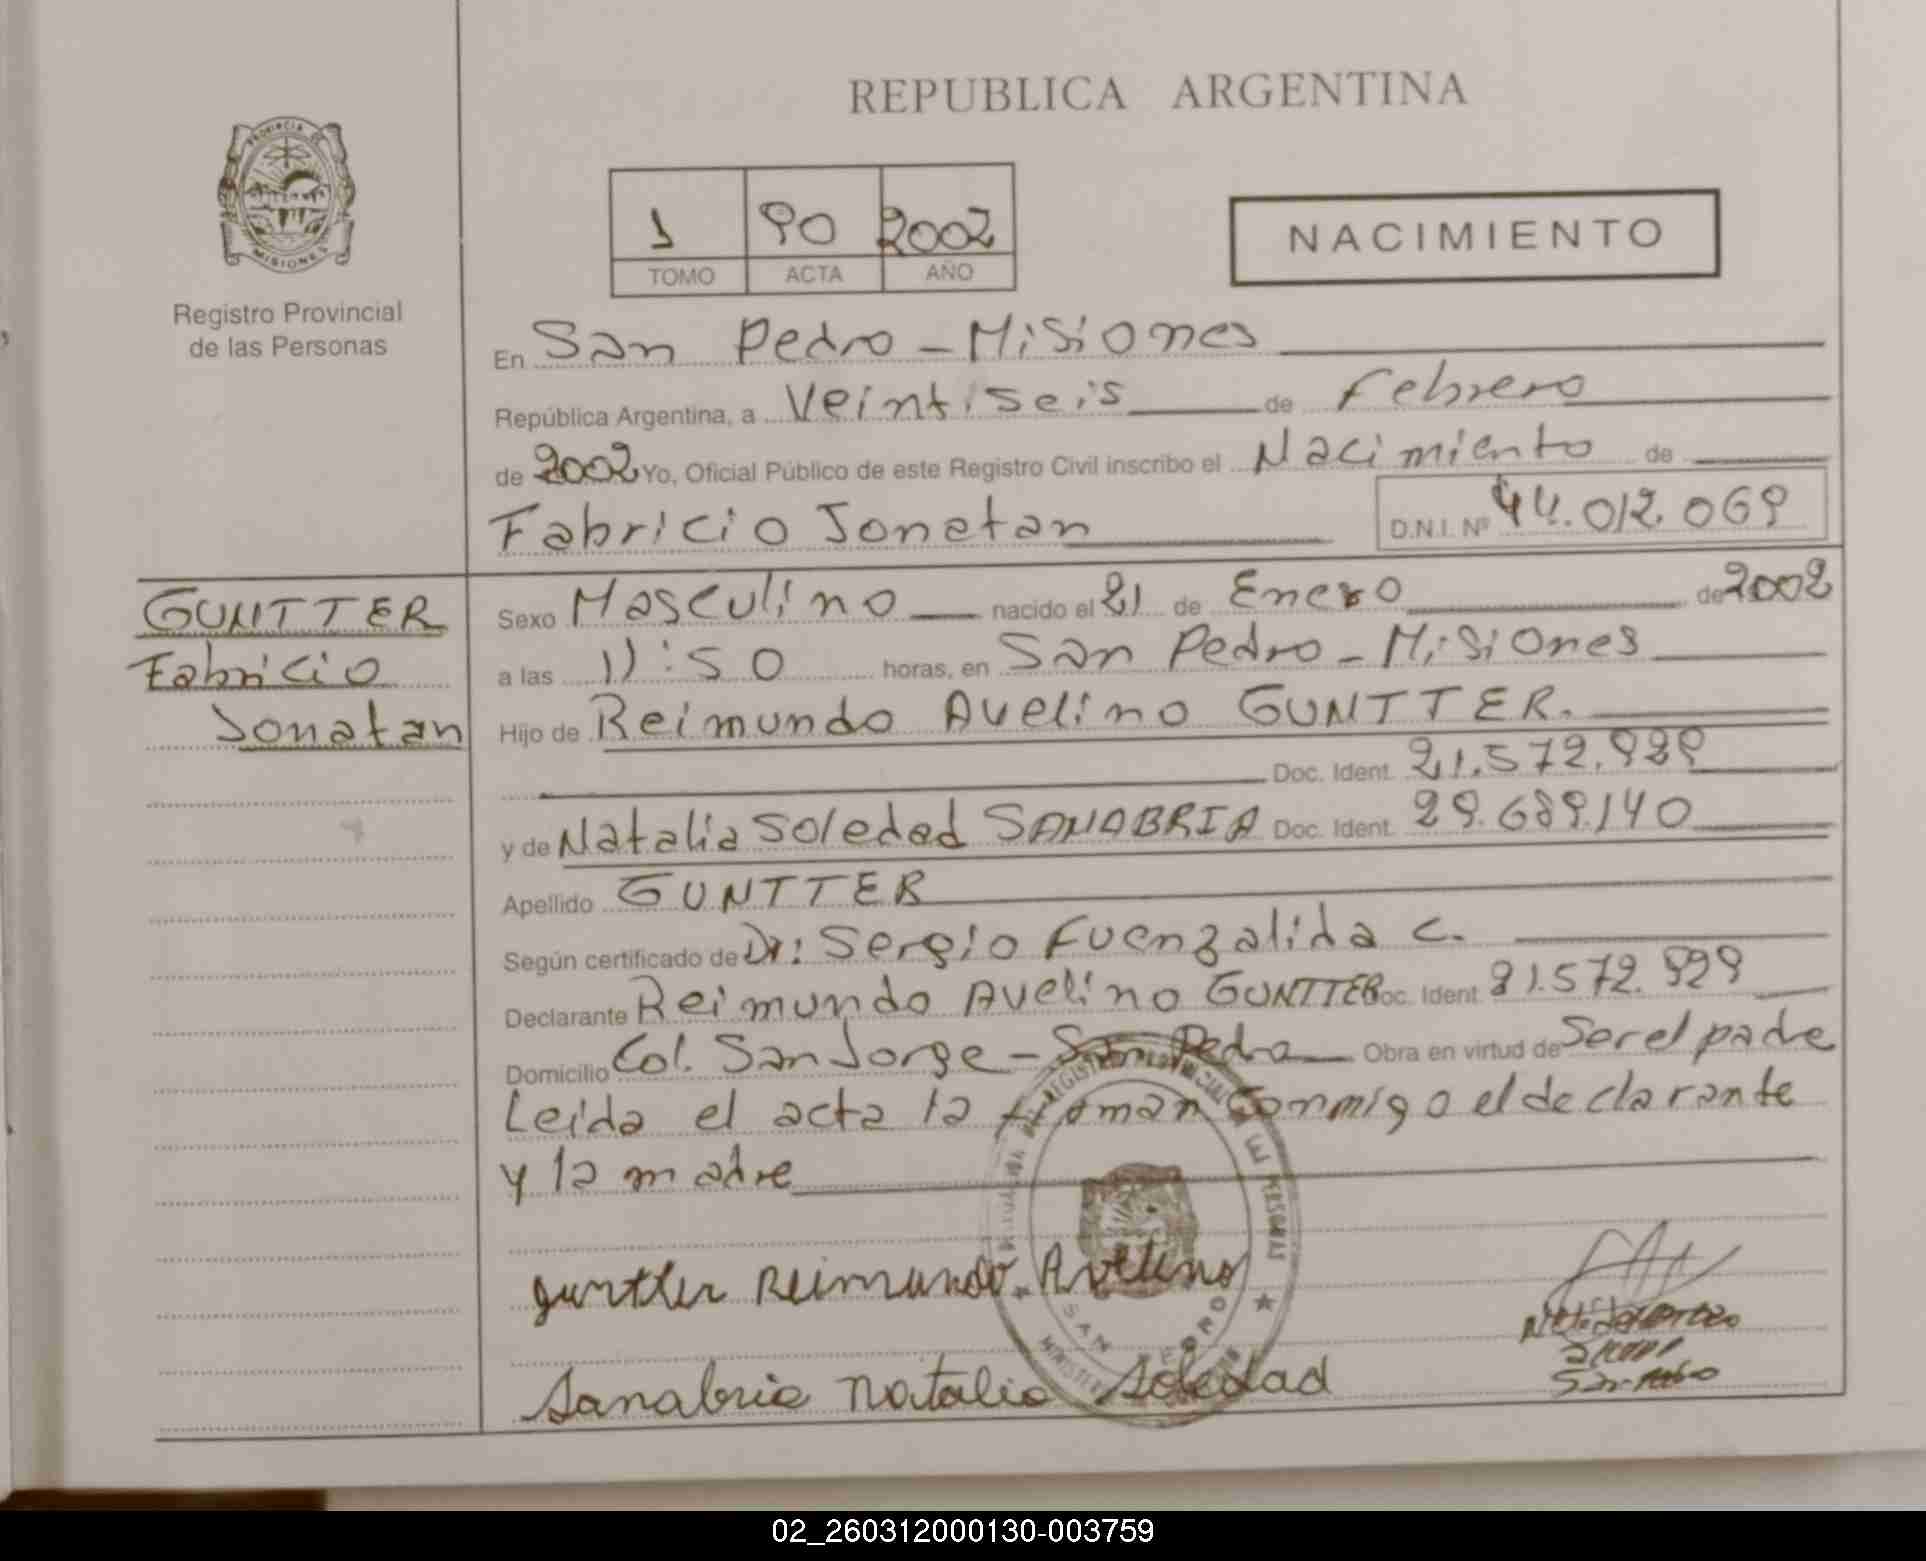 REPUBLICA ARGENTINA
PROVINCIA DE
MISIONES
Registro Provincial
de las Personas
1 90 2002
TOMO ACTA AÑO
NACIMIENTO
En San Pedro - Misiones
República Argentina, a Veintiseis de Febrero
de 2002 Yo, Oficial Público de este Registro Civil inscribo el Nacimiento de
Fabricio Jonatan D.N.I. Nº 44.012.069
GUNTTER
Fabricio
Jonatan
Sexo Masculino nacido el 21 de Enero de 2002
a las 11:50 horas, en San Pedro - Misiones
Hijo de Reimundo Avelino GUNTTER.
Doc. Ident. 21.572.929
y de Natalia Soledad SANABRIA Doc. Ident. 29.689.140
Apellido GUNTTER
Según certificado de Dr: Sergio Fuenzalida C.
Declarante Reimundo Avelino GUNTTER Doc. Ident. 21.572.929
Domicilio Col. San Jorge - San Pedro Obra en virtud de Ser el padre
Leida el acta la firman Conmigo el declarante
y la madre
guntter Reimundo Avelino
SAN PEDRO
Sanabria Natalia Soledad
02_260312000130-003759